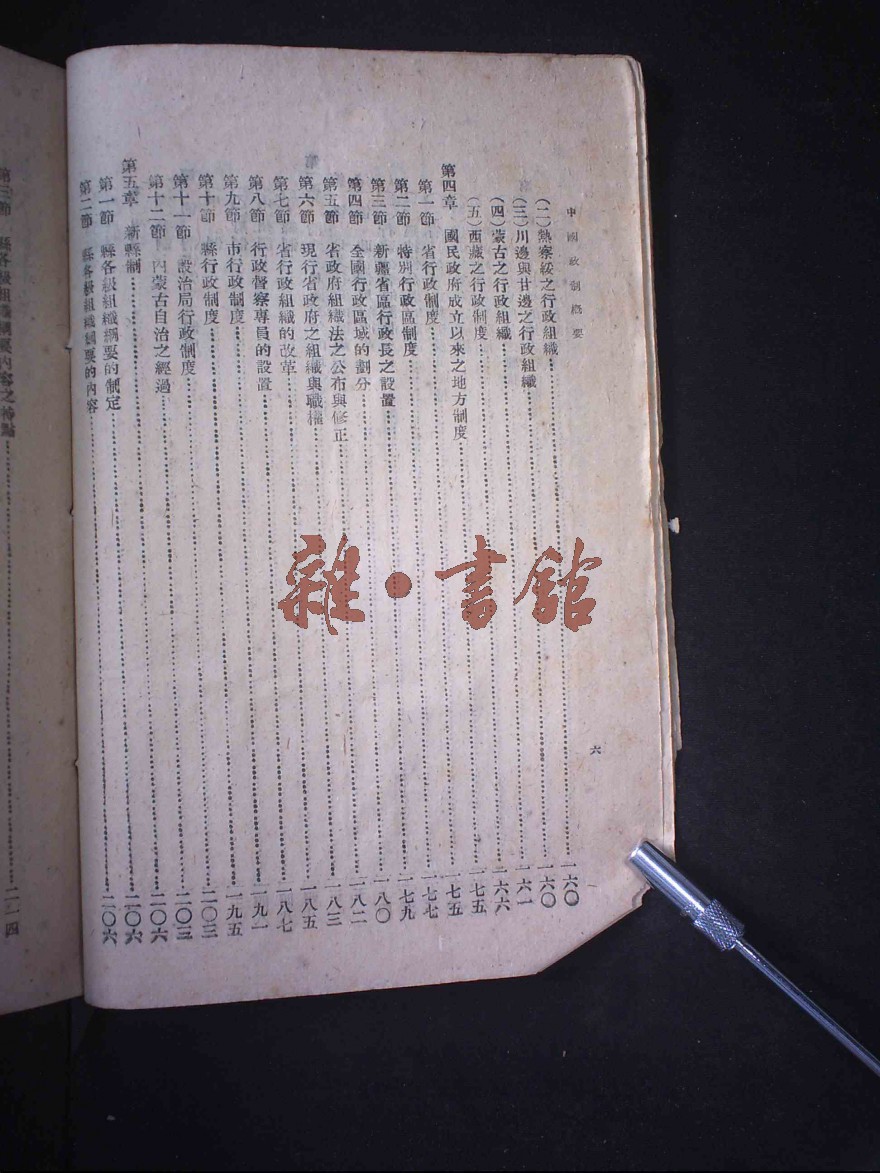 中國政制概要
六
(二)熱察綏之行政組織……一六〇
(三)川邊與甘邊之行政組織……一六〇
(四)蒙古之行政組織……一六一
(五)西藏之行政制度……一六六
第四章 國民政府成立以來之地方制度……一七五
第一節 省行政制度……一七五
第二節 特別行政區制度……一七七
第三節 新疆省區行政長之設置……一七九
第四節 全國行政區域的劃分……一八〇
第五節 省政府組織法之公布與修正……一八二
第六節 現行省政府之組織與職權……一八三
第七節 省行政組織的改革……一八五
第八節 行政督察專員的設置……一八七
第九節 市行政制度……一九一
第十節 縣行政制度……一九五
第十一節 設治局行政制度……二〇二
第十二節 內蒙古自治之經過……二〇三
第五章 新縣制……二〇六
第一節 縣各級組織綱要的制定……二〇六
第二節 縣各級組織綱要的內容……二〇六
第三節 縣各級組織綱要內容之特點……二一四
雜·書館